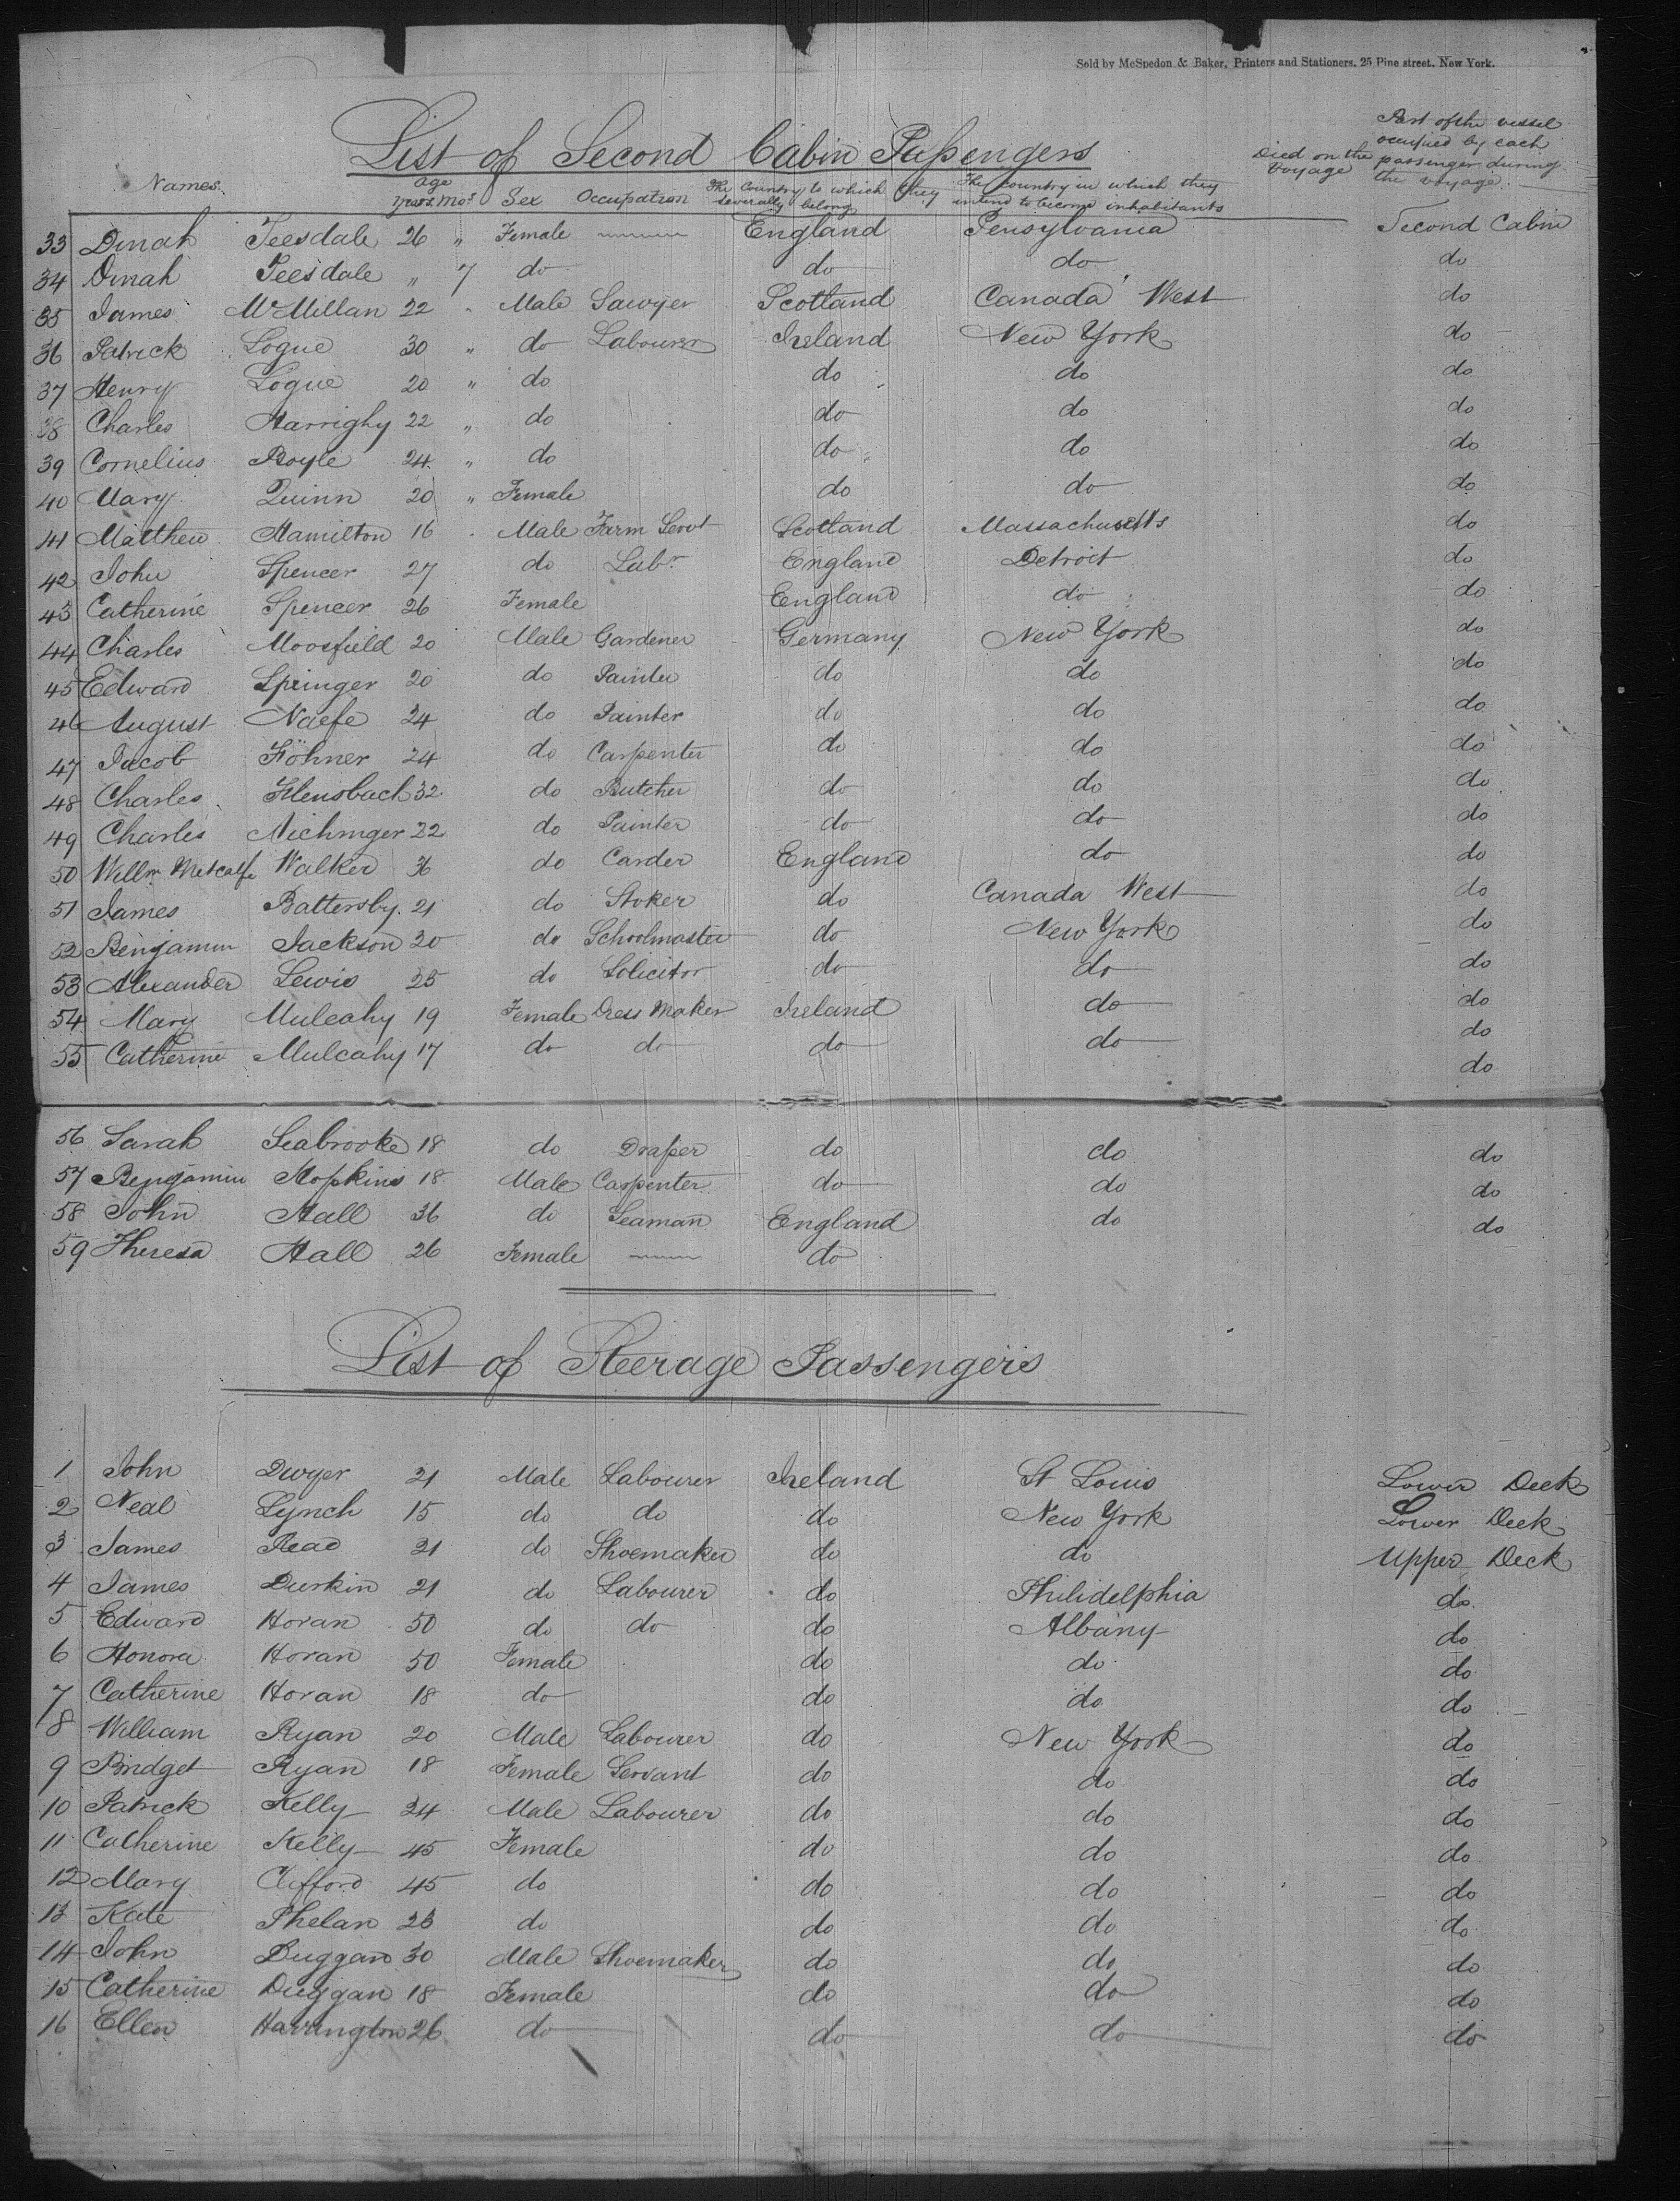 Sold by McSpedon & Baker, Printers and Stationers, 25 Pine street, New York.
List of Second Cabin Passengers
Names. Age years Mos Sex Occupation The Country to which they severally belong The country in which they intend to become inhabitants Died on the voyage Part of the vessel occupied by each passenger during the voyage.
33 Dinah Teesdale 26 " Female England Pensylvania Second Cabin
34 Dinah Teesdale " 7 do do do do
35 James McMillan 22 " Male Sawyer Scotland Canada West do
36 Patrick Logue 30 " do Labourer Ireland New York do
37 Henry Logue 20 " do do do do
38 Charles Harrighy 22 " do do do do
39 Cornelius Boyle 24 " do do do do
40 Mary Quinn 20 " Female do do do
41 Matthew Hamilton 16 Male Farm Servt Scotland Massachusetts do
42 John Spencer 27 do Labr England Detroit do
43 Catherine Spencer 26 Female England do do
44 Charles Moosfield 20 Male Gardener Germany New York do
45 Edward Springer 20 do Painter do do do
46 August Naefe 24 do Painter do do do
47 Jacob Föhner 24 do Carpenter do do do
48 Charles Flensbach 32 do Butcher do do do
49 Charles Nichinger 22 do Painter do do do
50 Willm Metcalfe Walker 36 do Carder England do do
51 James Battersby 21 do Stoker do Canada West do
52 Benjamin Jackson 20 do Schoolmaster do New York do
53 Alexander Lewis 25 do Solicitor do do do
54 Mary Mulcahy 19 Female Dress Maker Ireland do do
55 Catherine Mulcahy 17 do do do do do
do
56 Sarah Seabrooke 18 do Draper do do do
57 Benjamin Hopkins 18 Male Carpenter do do do
58 John Hall 36 do Seaman England do do
59 Theresa Hall 26 Female do
List of Steerage Passengers
1 John Dwyer 21 Male Labourer Ireland St Louis Lower Deck
2 Neal Lynch 15 do do do New York Lower Deck
3 James Read 21 do Shoemaker do do Upper Deck
4 James Durkin 21 do Labourer do Philidelphia do
5 Edward Horan 50 do do do Albany do
6 Honora Horan 50 Female do do do
7 Catherine Horan 18 do do do do
8 William Ryan 20 Male Labourer do New York do
9 Bridget Ryan 18 Female Servant do do do
10 Patrick Kelly 24 Male Labourer do do do
11 Catherine Kelly 45 Female do do do
12 Mary Clifford 45 do do do do
13 Kate Phelan 23 do do do do
14 John Duggan 30 Male Shoemaker do do do
15 Catherine Duggan 18 Female do do do
16 Ellen Harrington 26 do do do do